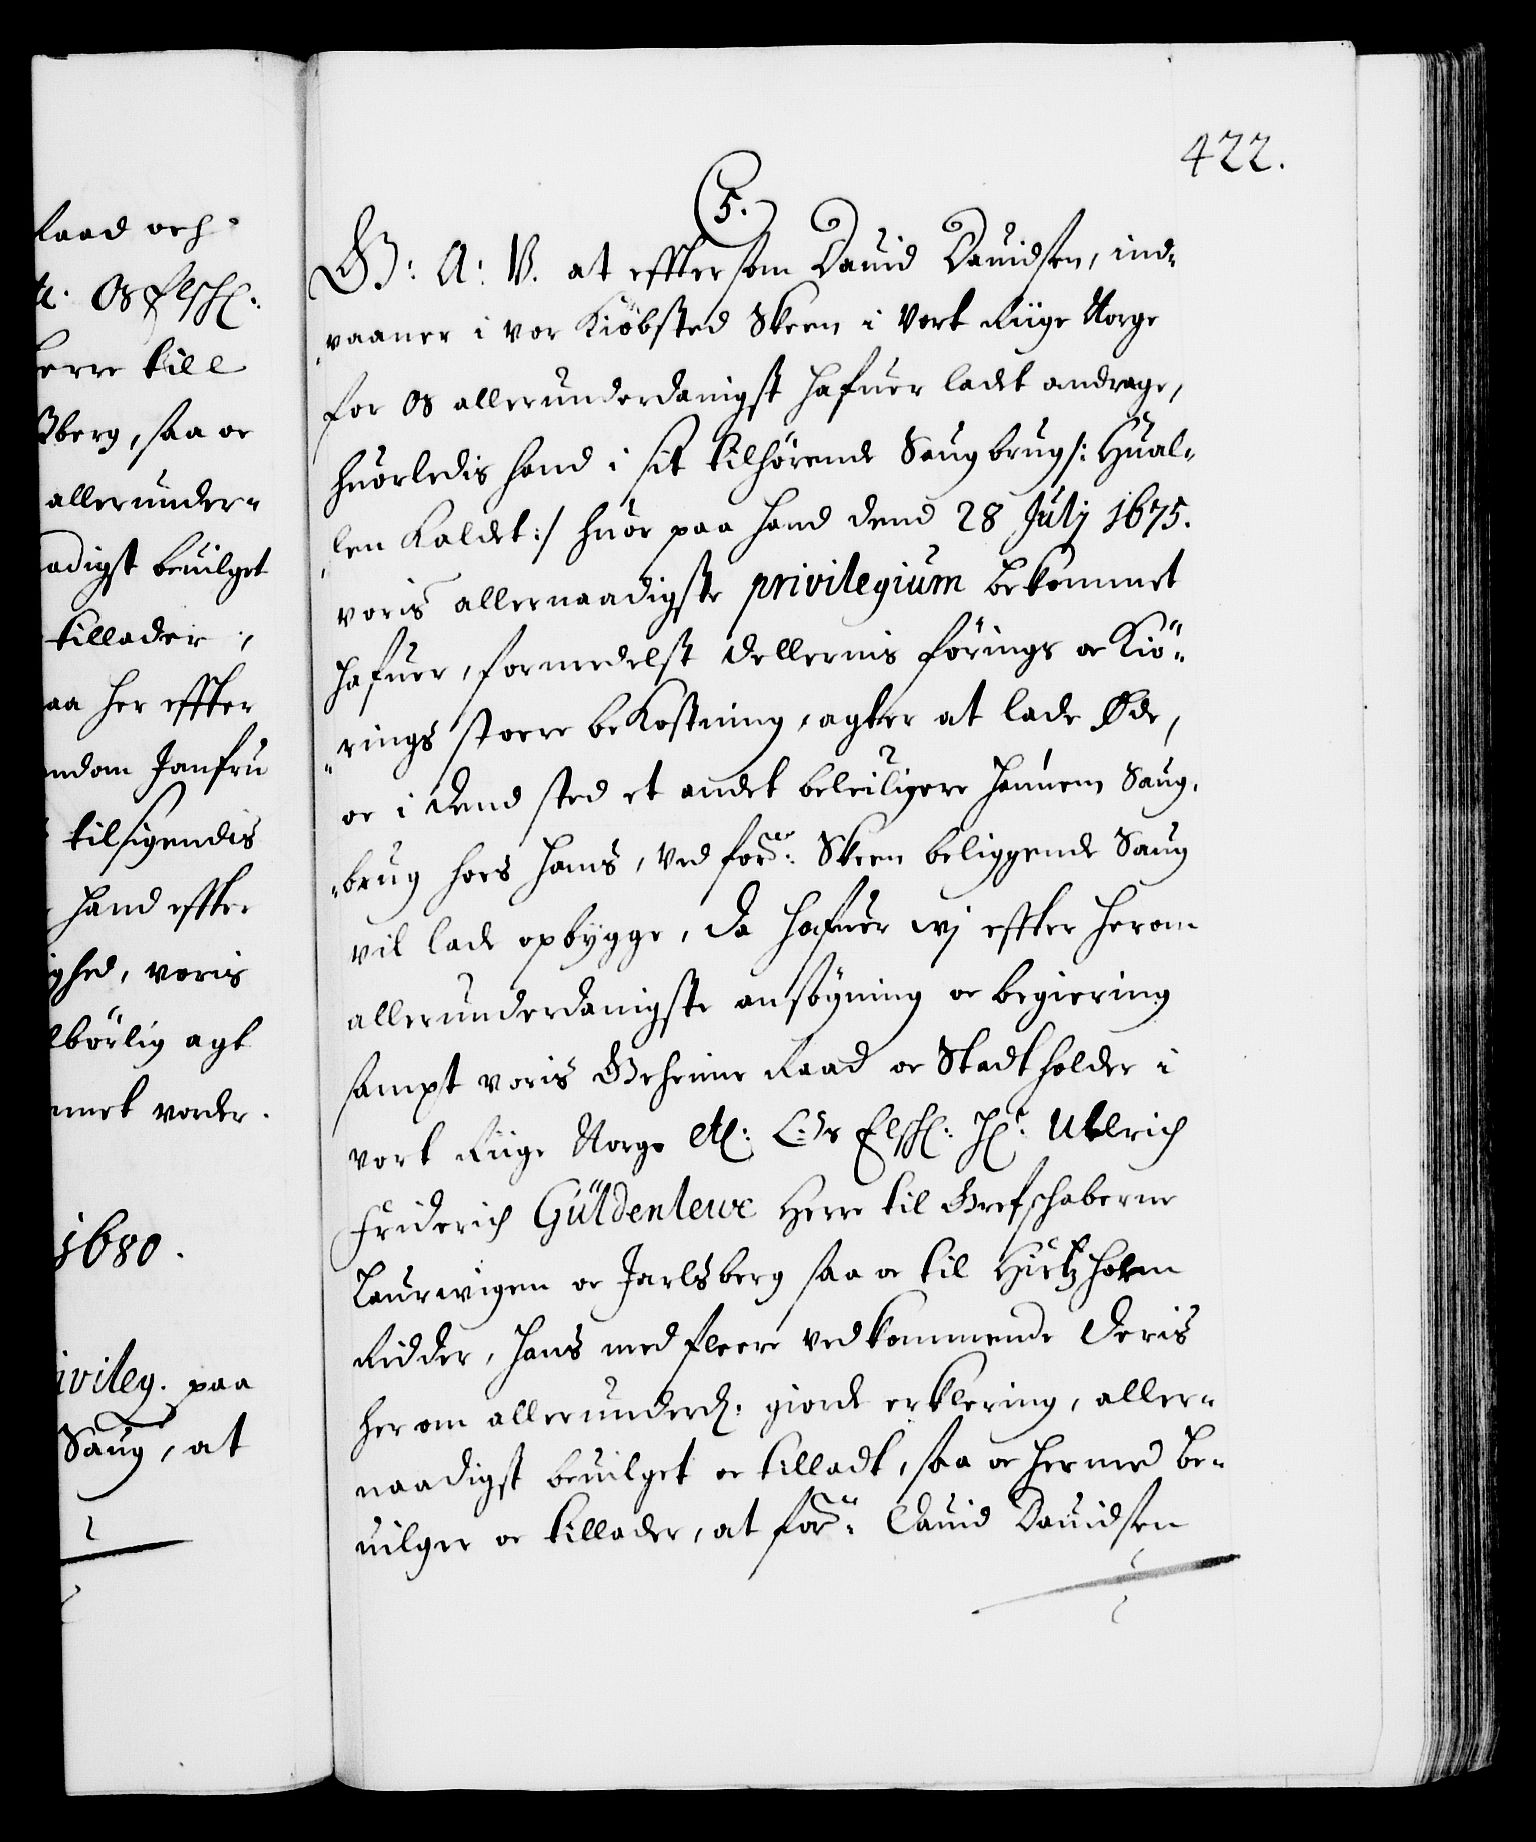 Raad och
etc. Os Elschl:
Herre till
berg, saa oc
allerunder-
aadigst beuilget
tillader,
aa her effter
ndom Jomfru
tilsigendis
hand effter
ighed, voris
lbørlig agt
mmet vorder.
1680.
ivileg. paa
Saug, at
422.
5.
G: A: V. at effter som Dauid Dauidsen, ind-
vaaner i vor Kiöbsted Skeen i Vort Riige Norge
for Os allerunderdanigst hafuer ladet andrage,
huorledis hand i sit tilhörende Saugbrug /: Hual-
len Kaldet :/ huor paa hand dend 28 Julij 1675.
voris allernaadigste privilegium bekommet
hafuer, formedelst dellernis förings oc Kiö-
rings stoere bekostning, agter at lade Øde,
oc i dend sted et andet beleiligere hannem Saug-
brug hoes hans, ved forne: Skeen beliggende Saug
vil lade opbygge, Da hafuer wj effter herom
allerunderdanigste ansögning oc begiering
sampt voris Geheime Raad oc Stadtholder i
vort Riige Norge etc: Os Elschl: Hr: Ulrich
Friderich Güldenlewe Herre til Grefschaberne
Laurwigen oc Jarlsberg saa oc til Hirtzholm
Ridder, hans med fleere vedkommende deris
her om allerunderd: giorde erklering, aller-
naadigst beuilget oc tilladt, saa oc hermed be-
uilger oc tillader, at forne: Dauid Dauidsen